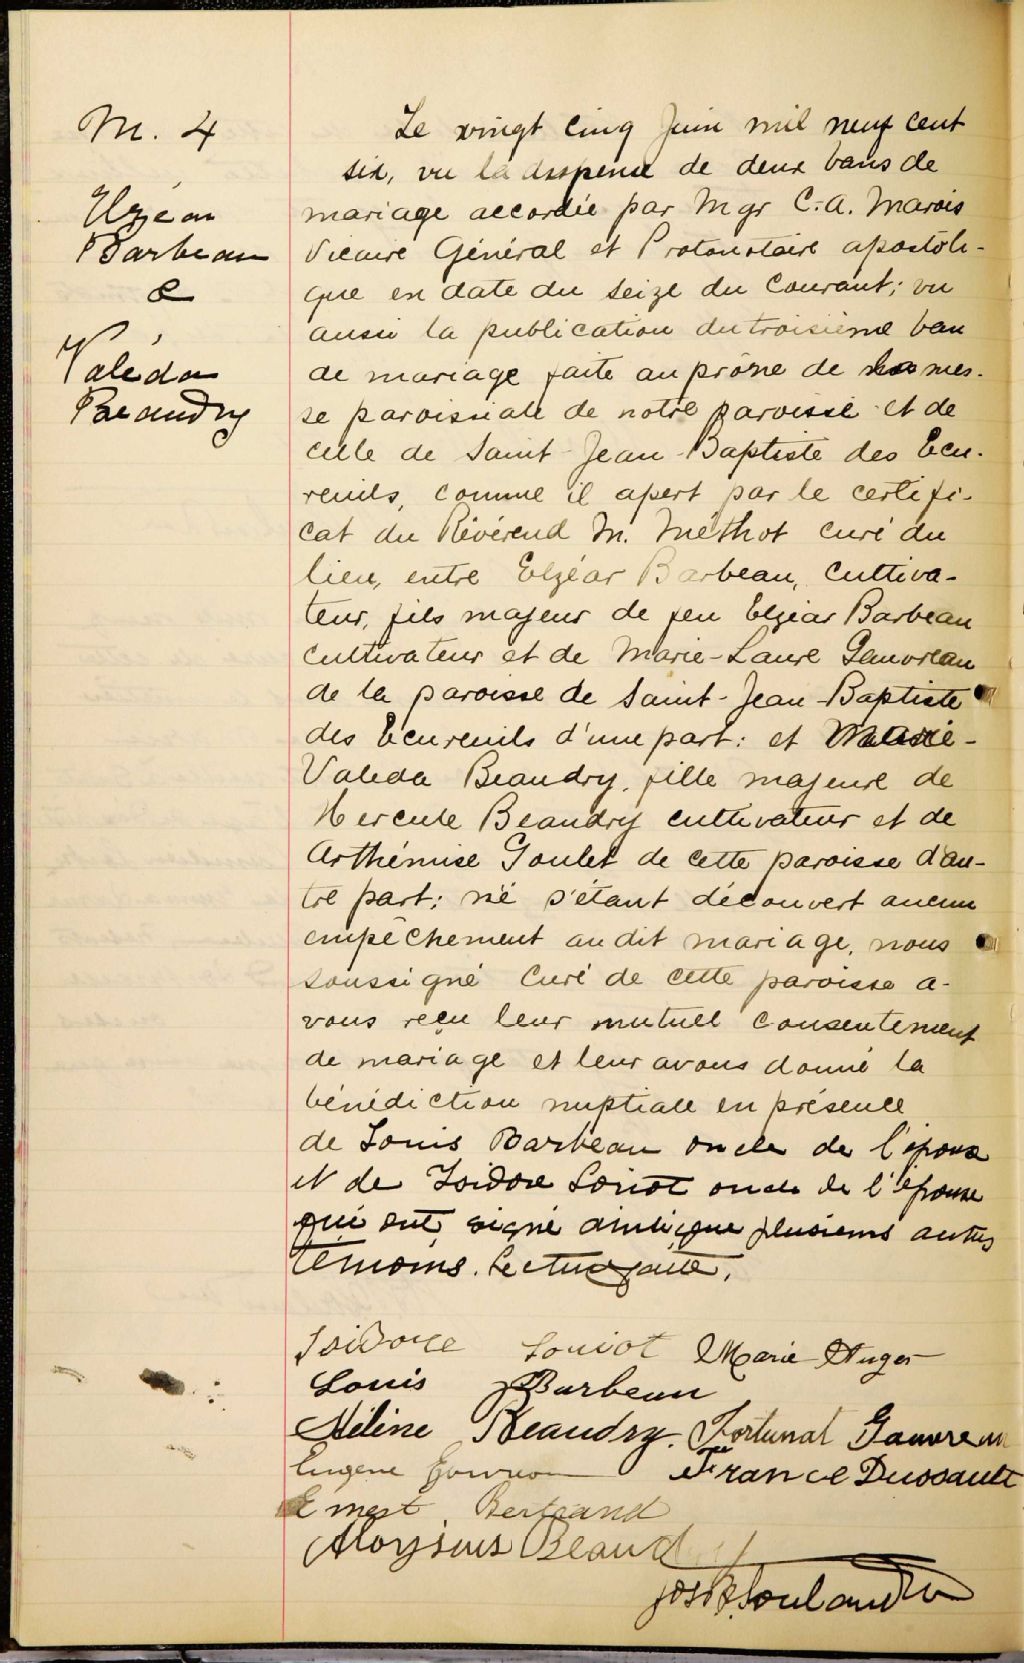 M. 4
Elzéar
Barbeau
&
Valéda
Beaudry
Le vingt cinq Juin mil neuf cent
six, vu la dispense de deux bans de
mariage accordée par Mgr C.A. Marois
Vicaire Général et Protonotaire apostoli-
que en date du seize du courant; vu
aussi la publication du troisième ban
de mariage faite au prône de la mes-
se paroissiale de notre paroisse et de
celle de Saint-Jean-Baptiste des Ecu-
reuils, comme il apert par le certifi-
cat du Révérend M. Méthot curé du
lieu, entre Elzéar Barbeau, cultiva-
teur, fils majeur de feu Elzéar Barbeau
cultivateur et de Marie-Laure Gauvreau
de la paroisse de Saint-Jean-Baptiste
des Ecureuils d'une part: et Marie-
Valeda Beaudry, fille majeure de
Hercule Beaudry cultivateur et de
Arthémise Goulet de cette paroisse d'au-
tre part; ne s'étant découvert aucun
empêchement au dit mariage, nous
soussigné curé de cette paroisse a-
vons reçu leur mutuel consentement
de mariage et leur avons donné la
bénédiction nuptiale en présence
de Louis Barbeau oncle de l'époux
et de Isidore Loriot oncle de l'épouse
qui ont signé ainsi que plusieurs autres
témoins. Lecture faite.
Isidore Loriot Marie Auger
Louis Barbeau
Hélène Beaudry. Fortunat Gauvreau
Eugène France Dussault
Ernest Bertrand
Aloysius Beaudry